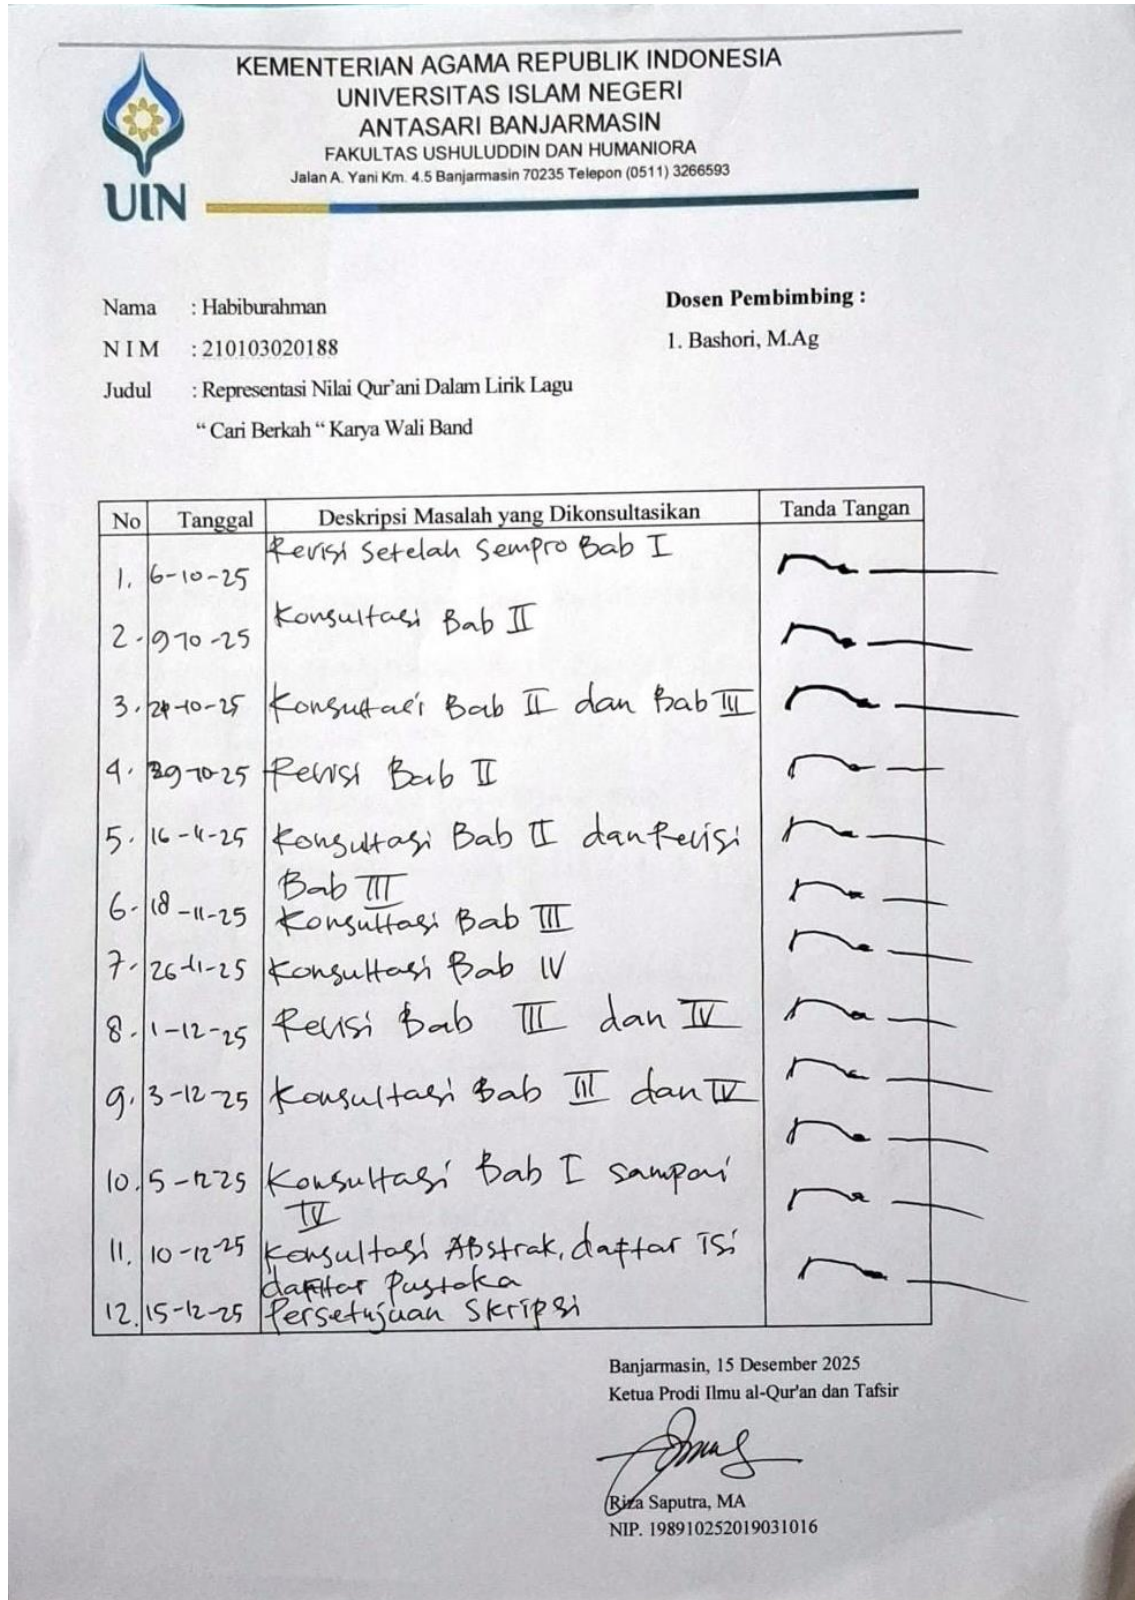 KEMENTERIAN AGAMA REPUBLIK INDONESIA
UNIVERSITAS ISLAM NEGERI
ANTASARI BANJARMASIN
FAKULTAS USHULUDDIN DAN HUMANIORA
Jalan A. Yani Km. 4.5 Banjarmasin 70235 Telepon (0511) 3266593
UIN
Nama : Habiburahman
N I M : 210103020188
Judul : Representasi Nilai Qur'ani Dalam Lirik Lagu
“ Cari Berkah “ Karya Wali Band
Dosen Pembimbing :
1. Bashori, M.Ag
No Tanggal Deskripsi Masalah yang Dikonsultasikan Tanda Tangan
1. 6-10-25 Revisi Setelah Sempro Bab I
2. 9-10-25 Konsultasi Bab II
3. -10-25 Konsultasi Bab II dan Bab III
4. 29-10-25 Revisi Bab II
5. 16-11-25 Konsultasi Bab II dan Revisi
Bab III
6. 18-11-25 Konsultasi Bab III
7. 26-11-25 Konsultasi Bab IV
8. 1-12-25 Revisi Bab III dan IV
9. 3-12-25 Konsultasi Bab III dan IV
10. 5-12-25 Konsultasi Bab I sampai
IV
11. 10-12-25 Konsultasi Abstrak, daftar isi
daftar Pustaka
12. 15-12-25 Persetujuan Skripsi
Banjarmasin, 15 Desember 2025
Ketua Prodi Ilmu al-Qur'an dan Tafsir
Riza Saputra, MA
NIP. 198910252019031016